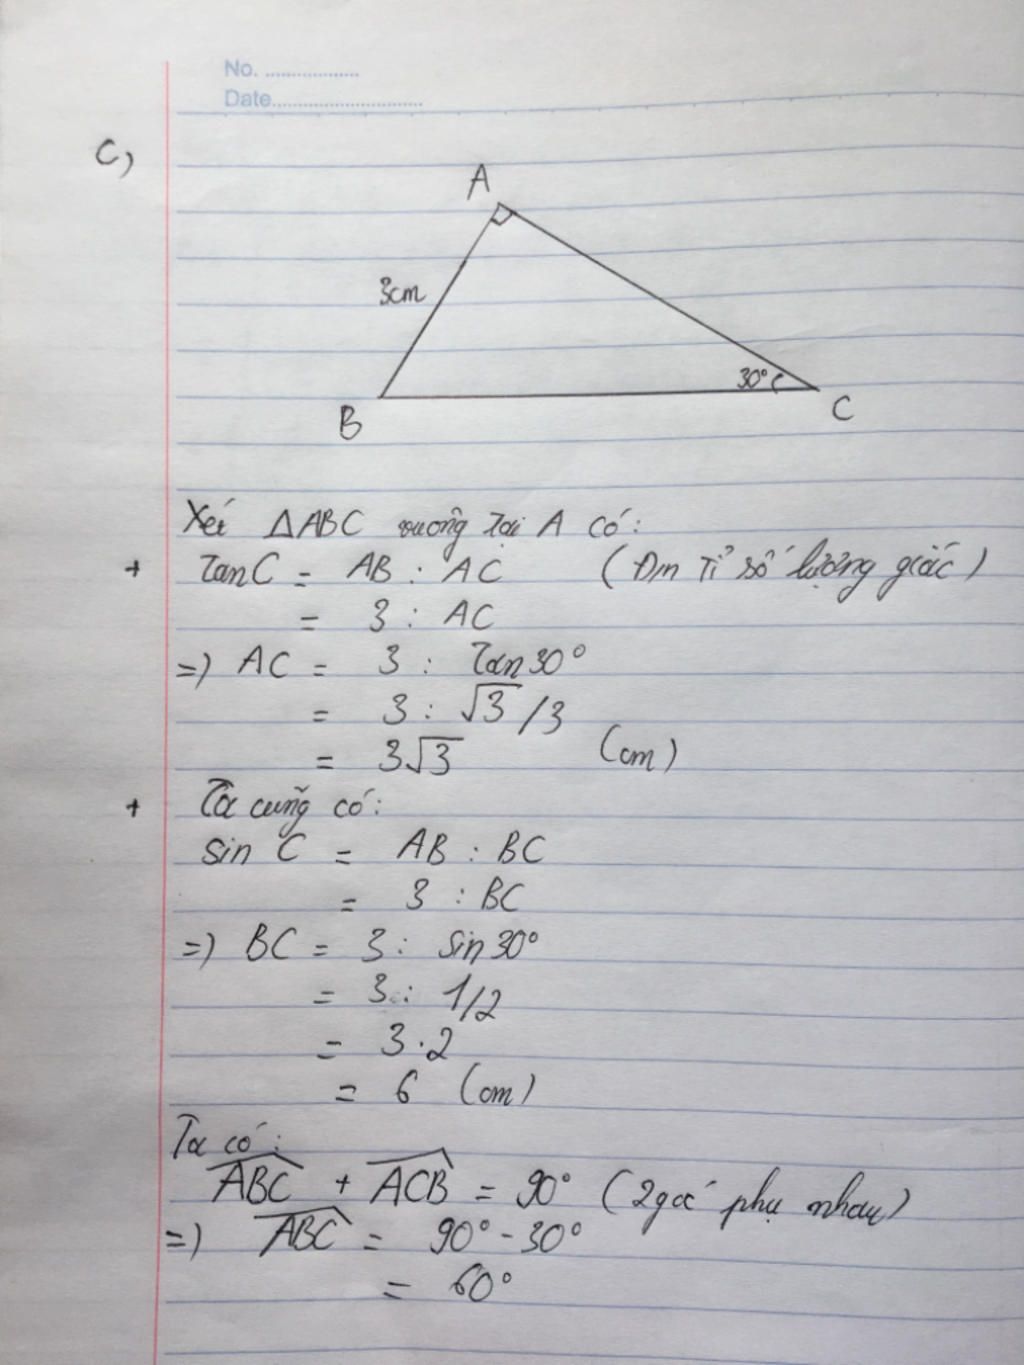 No. ..................
Date............................
C,
A
3cm
30°
B
C
Xét ΔABC vuông tại A có:
+ tanC = AB : AC (Đn Tỉ số lượng giác)
= 3 : AC
=) AC = 3 : tan30°
= 3 : √3 /3
= 3√3 (cm)
+ Ta cũng có:
sin C = AB : BC
= 3 : BC
=) BC = 3 : sin30°
= 3 : 1/2
= 3.2
= 6 (cm)
Ta có:
ABC + ACB = 90° (2 góc phụ nhau)
=) ABC = 90° - 30°
= 60°